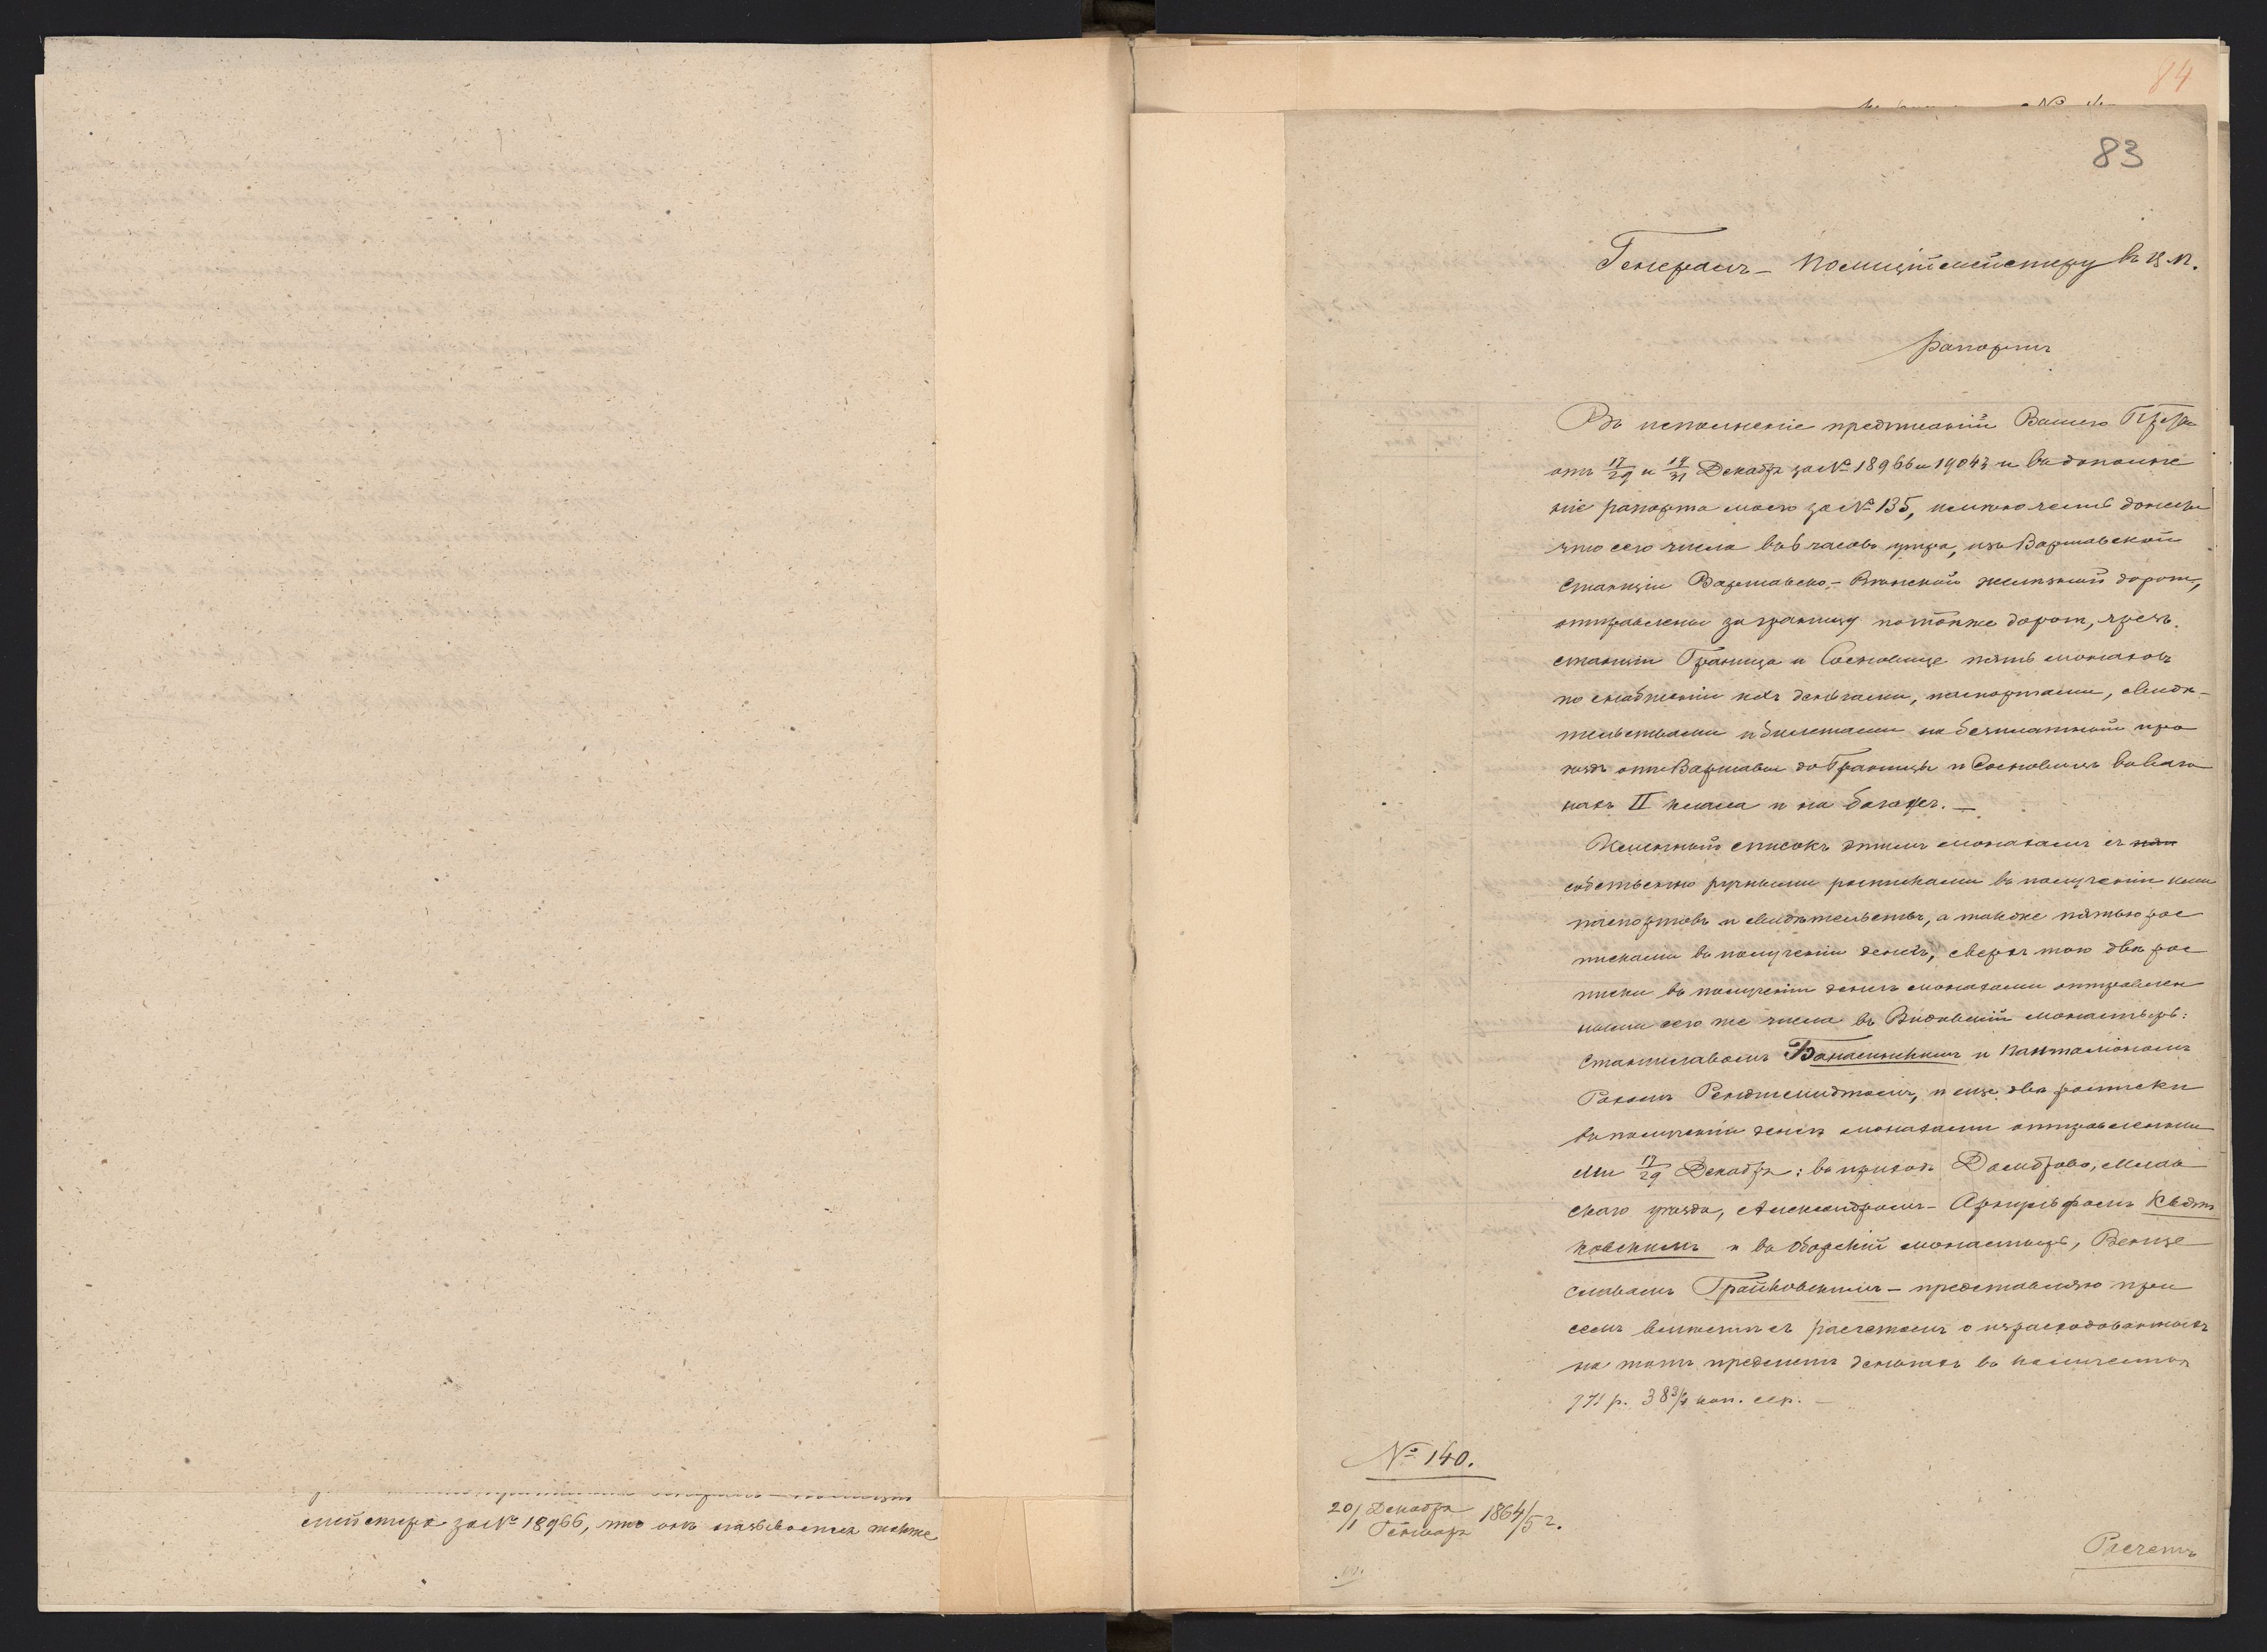 мейстера за № 18966, что онъ называется также
84
83
Генералъ-Полицiймейстеру въ Ц. П.
Рапортъ
Въ исполненiе предписанiй Вашего Прев
отъ 17/29 и 19/31 Декабря за № 18966 и 19043 и въ дополне
нiе рапорта моего за № 135, имѣю честь донести
что сего числа въ 6 часовъ утра, изъ Варшавской
станцiи Варшавско-Вѣнской желѣзной дороги,
отправлены за границу по той же дорогѣ, чрезъ
станцiи Граница и Сосновице пять монаховъ
по снабженiи ихъ деньгами, паспортами, свидѣ-
тельствами и билетами на безплатный про
ѣздъ отъ Варшавы до Границы и Сосновицъ въ ваго
нахъ II класса и на багажъ. —
Именный списокъ этимъ монахамъ съ
собственно ручными росписками въ полученiи ими
паспортовъ и свидѣтельствъ, а также пятью рос
писками въ полученiи денегъ, сверхъ того двѣ рос
писки въ полученiи денегъ монахами отправлен
ными сего же числа въ монастырь:
Станиславомъ и Панталiономъ
и еще двѣ росписки
въ полученiи денегъ монахами отправленны
ми 17/29 Декабря: въ приходъ Домброво, Млав
скаго уѣзда, Александромъ-
и въ монастырь, Венце
славомъ Грайковскимъ — представляю при
семъ вмѣстѣ съ расчетомъ о израсходованныхъ
на тотъ предметъ деньгахъ въ количествѣ
771 р. 38 3/4 коп. сер. —
№ 140.
20/1 Декабря/Генваря 1864/5 г.
Расчетъ